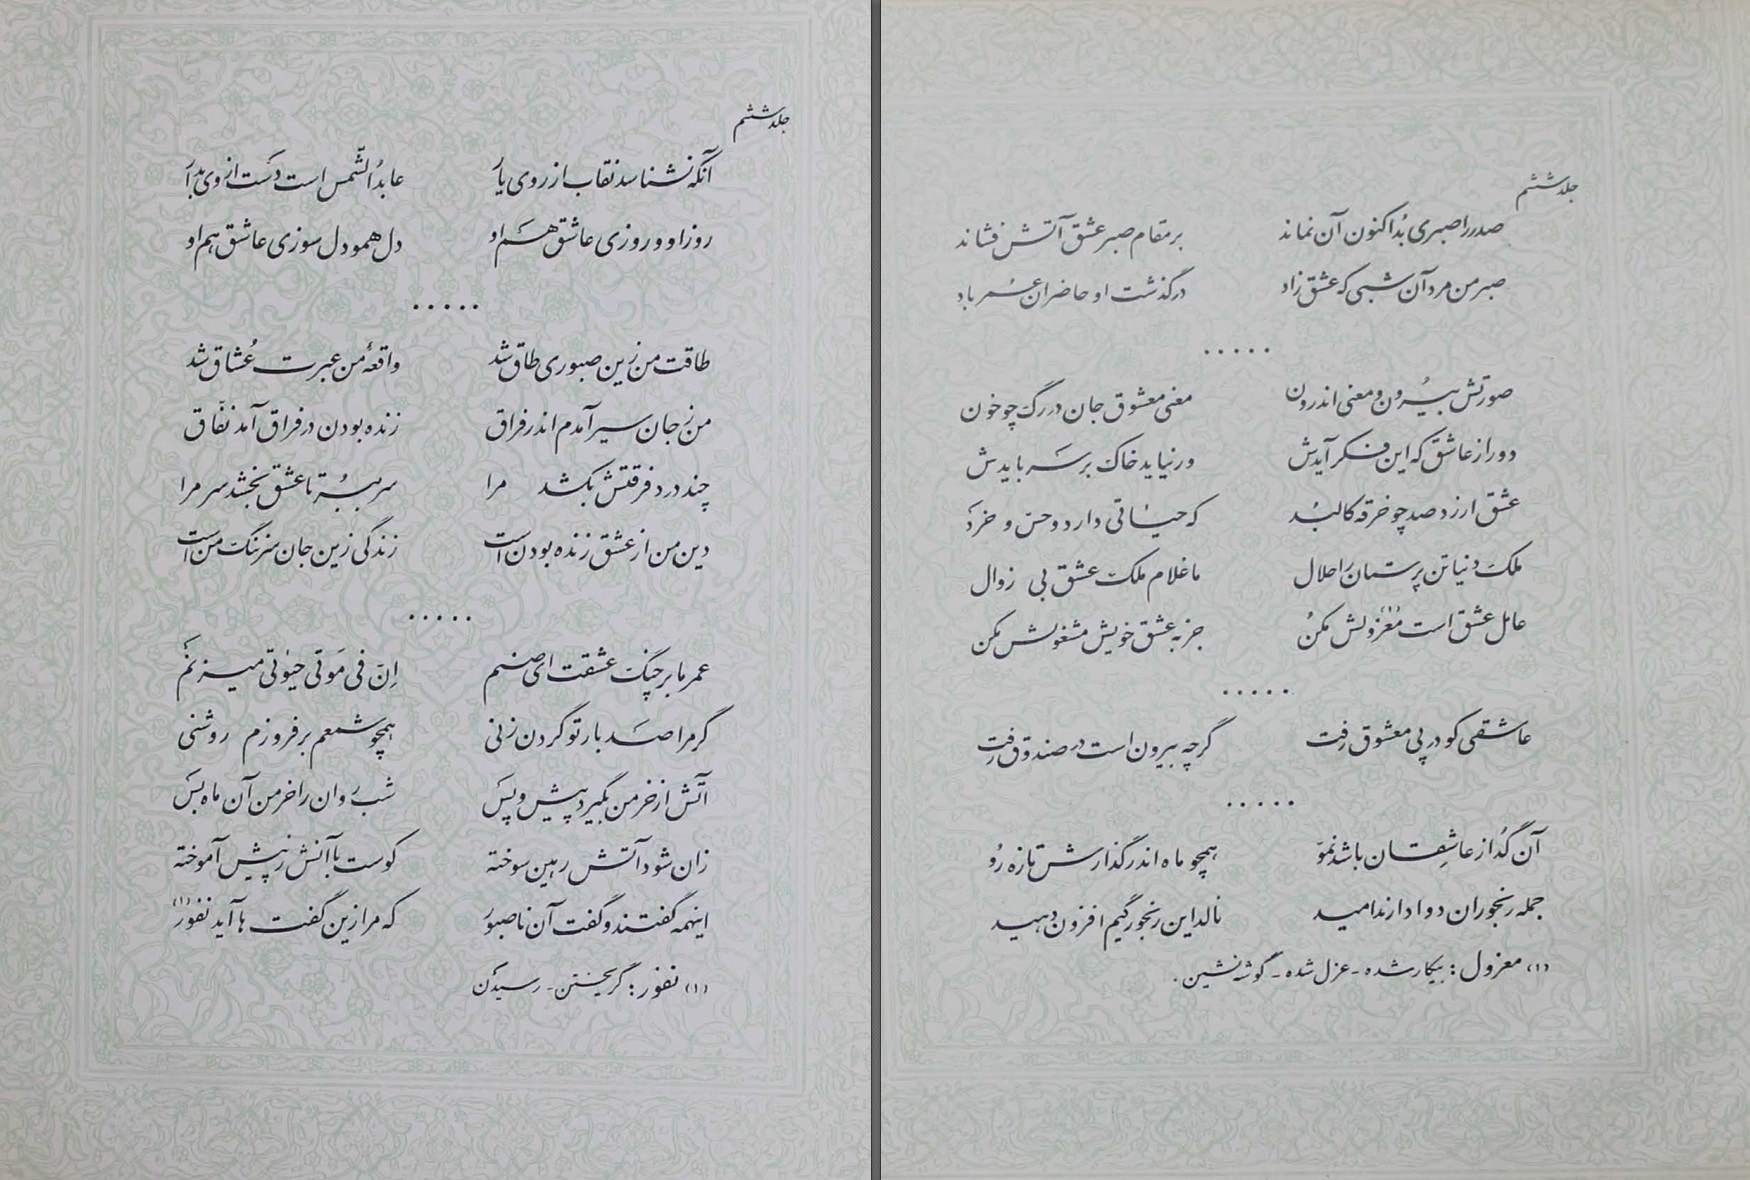 جلد ششم
صدر را صبری بُد اکنون آن نماند بر مقام صبر عشق آتش فشاند
صبر من مرد آن شبی که عشق زاد درگذشت او حاضران عمر باد
.....
صورتش بیرون و معنی اندرون معنی معشوق جان در رگ چو خون
دور از عاشق که این فکر آیدش ور نیاید خاک بر سر بایدش
عشق ارزد صد چو خرقه کالبُد که حیاتی دارد و حس و خرد
ملک دنیا تن پرستان را حلال ما غلام ملک عشق بی زوال
عامل عشق است معزولش(۱) مکن جز به عشق خویش مشغولش مکن
.....
عاشقی کو در پی معشوق رفت گرچه بیرون است در صندوق رفت
.....
آن گُداز عاشقان باشد نمو همچو ماه اندر گذارش تازه رُو
جمله رنجوران دوا دارند امید نالد این رنجور کیم افزون دهید
(۱) معزول : بیکار شده - عزل شده - گوشه نشین .
جلد ششم
آنکه نشناسد نقاب از روی یار عابدُ الشّمس است دست از وی بدار
روز او و روزی عاشق هم او دل همو دل سوزی عاشق هم او
.....
طاقت من زین صبوری طاق شد واقعهٔ من عبرت عُشاق شد
من ز جان سیر آمدم اندر فراق زنده بودن در فراق آمد نفاق
چند درد فرقتش بکشد مرا سر ببُر تا عشق بخشد سر مرا
دین من از عشق زنده بودن است زندگی زین جان سر ننگ من است
.....
عمر ما بر چنگ عشقت ای صنم اِنّ فی مَوتی حیٰوتی میزنم
گر مرا صد بار تو گردن زنی همچو شمعم بر فروزم روشنی
آتش ار خرمن بگیرد پیش و پس شب روان را خرمن آن ماه بس
زان شود آتش رهین سوخته کوست با آتش ز پیش آموخته
اینهمه گفتند و گفت آن ناصبور که مرا زین گفت ها آید نفور(۱)
(۱) نفور : گریختن - رسیدن